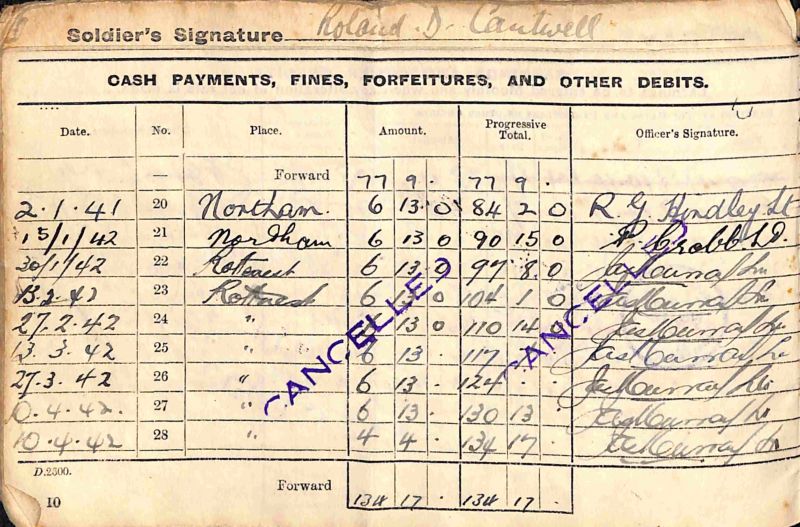 Soldier's Signature Roland D. Cantwell
CASH PAYMENTS, FINES, FORFEITURES, AND OTHER DEBITS.
Date. No. Place. Amount. Progressive Total. Officer's Signature.
— Forward 77 9 . 77 9 .
2.1.41 20 Northam. 6 13 0 84 2 0 R. G. Hindley Lt
15/1/42 21 Northam 6 13 0 90 15 0 Lt.
30/1/42 22 Rottnest 6 13 0 97 8 0 Jas Murray Lt
13.2.42 23 Rottnest 6 13 0 104 1 0 Jas Murray Lt
27.2.42 24 " 13 0 110 14 0 Jas Murray Lt
13.3.42 25 " 6 13 . 117 Jas Murray Lt
27.3.42 26 " 6 13 . 124 . . Jas Murray Lt
10.4.42. 27 " 6 13 . 130 13 . Jas Murray Lt
10.4.42 28 " 4 4 . 134 17 . Jas Murray Lt
CANCELLED
CANCELLED
D.2500.
Forward 134 17 . 134 17 .
10